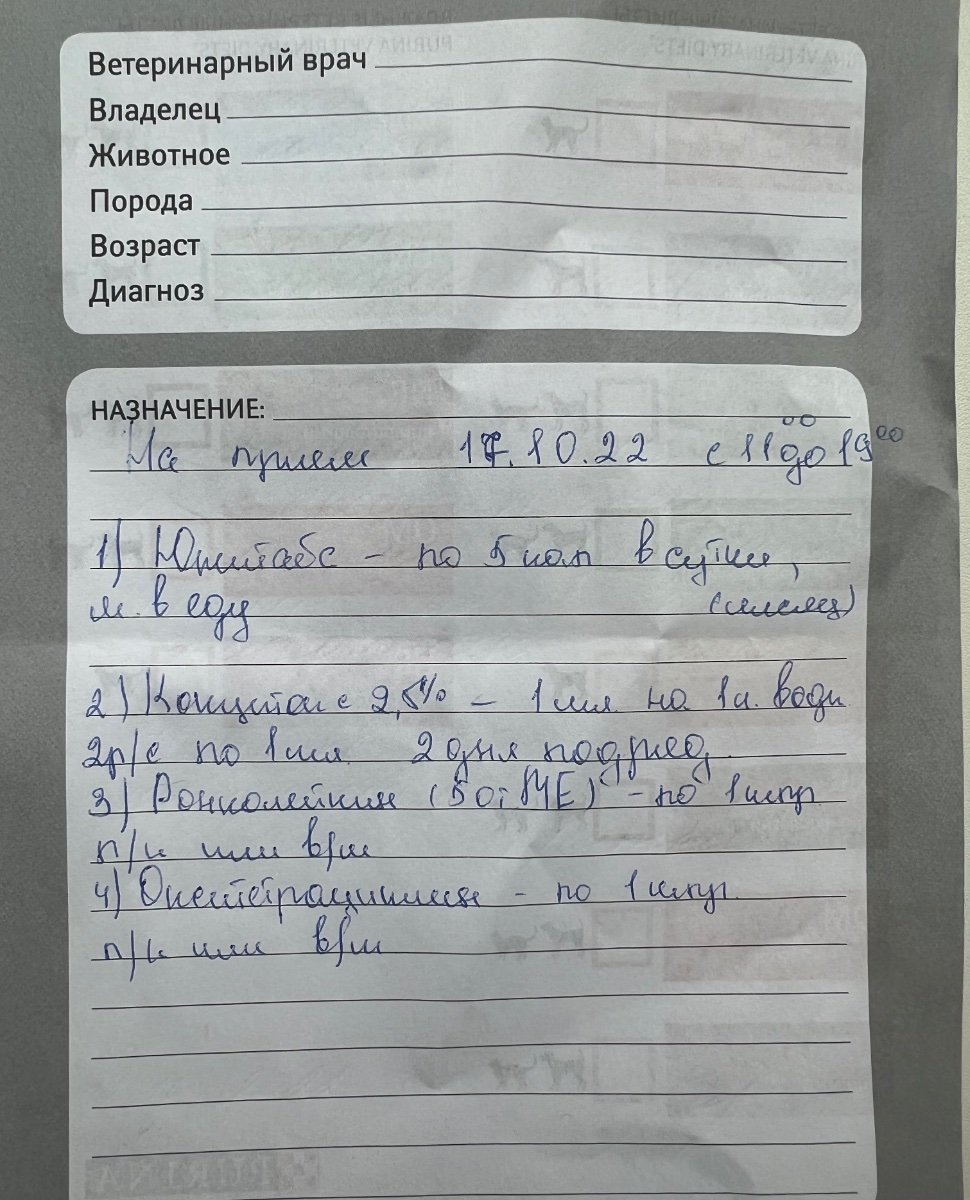 Ветеринарный врач
Владелец
Животное
Порода
Возраст
Диагноз
НАЗНАЧЕНИЕ:
На прием 17.10.22 с 11 00 до 19 00
1) Юнитабс - по 5 кап в сутки,
м. в еду (месяц)
2) Кокцитокс 2,5% - 1 мл. на 1 л. воды
2р/с по 1 мл. 2 дня подряд
3) Ронколейкин (50 т МЕ) - по 1 инъ
п/к или в/м
4) Окситетрациклин - по 1 инъ
п/к или в/м